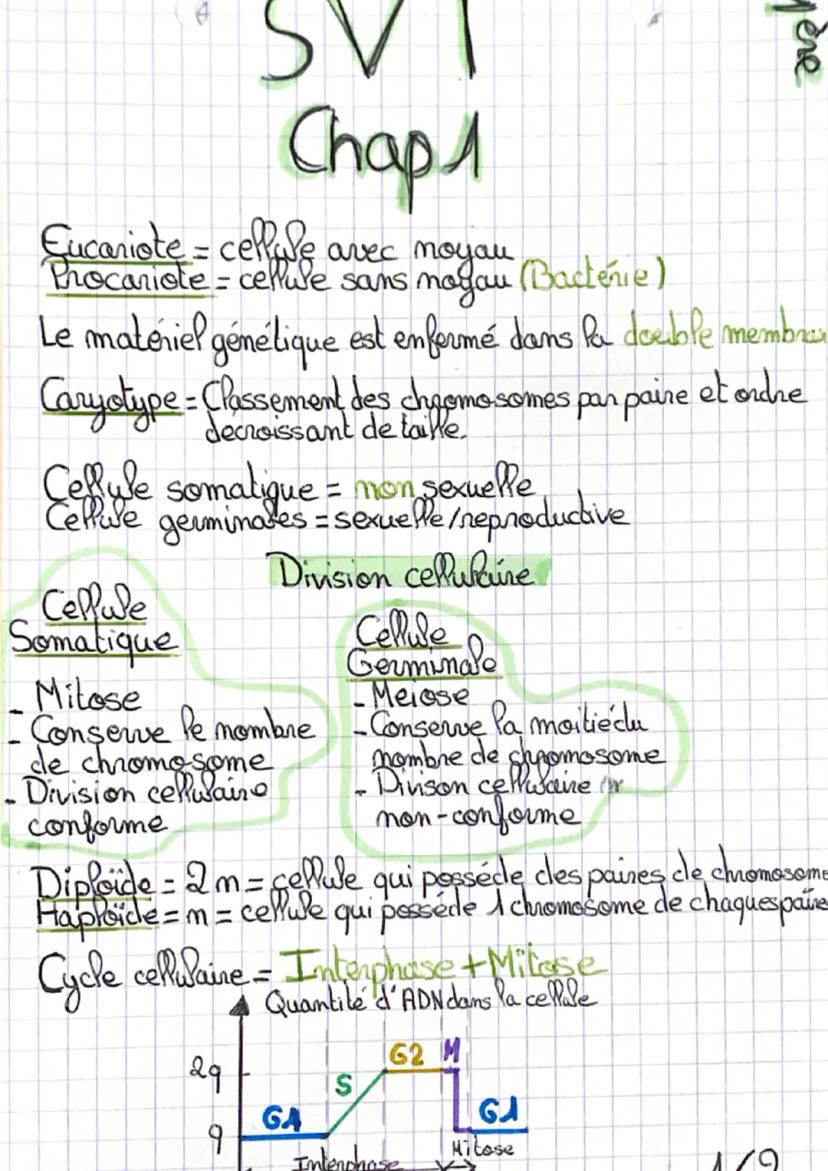 SVT
Chap 1
Eucariote = cellule avec noyau
Procariote = cellule sans noyau (Bactérie)
Le matériel génétique est enfermé dans la double membran
Caryotype = Classement des chromosomes par paire et ordre
decroissant de taille.
Cellule somatique = non sexuelle
Cellule germinales = sexuelle/reproductive
Division cellulaire
Cellule
Somatique
- Mitose
- Conserve le nombre
de chromosome
- Division cellulaire
conforme
Cellule
Germinale
- Meiose
- Conserve la moitié du
nombre de chromosome
- Divison cellulaire
non-conforme
Diploïde = 2n = cellule qui posséde des paires de chromosome
Haploïde = n = cellule qui posséde 1 chromosome de chaques paire
Cycle cellulaire = Interphase + Mitose
Quantité d'ADN dans la cellule
2q
q
G1
S
G2
M
G1
Interphase
Mitose